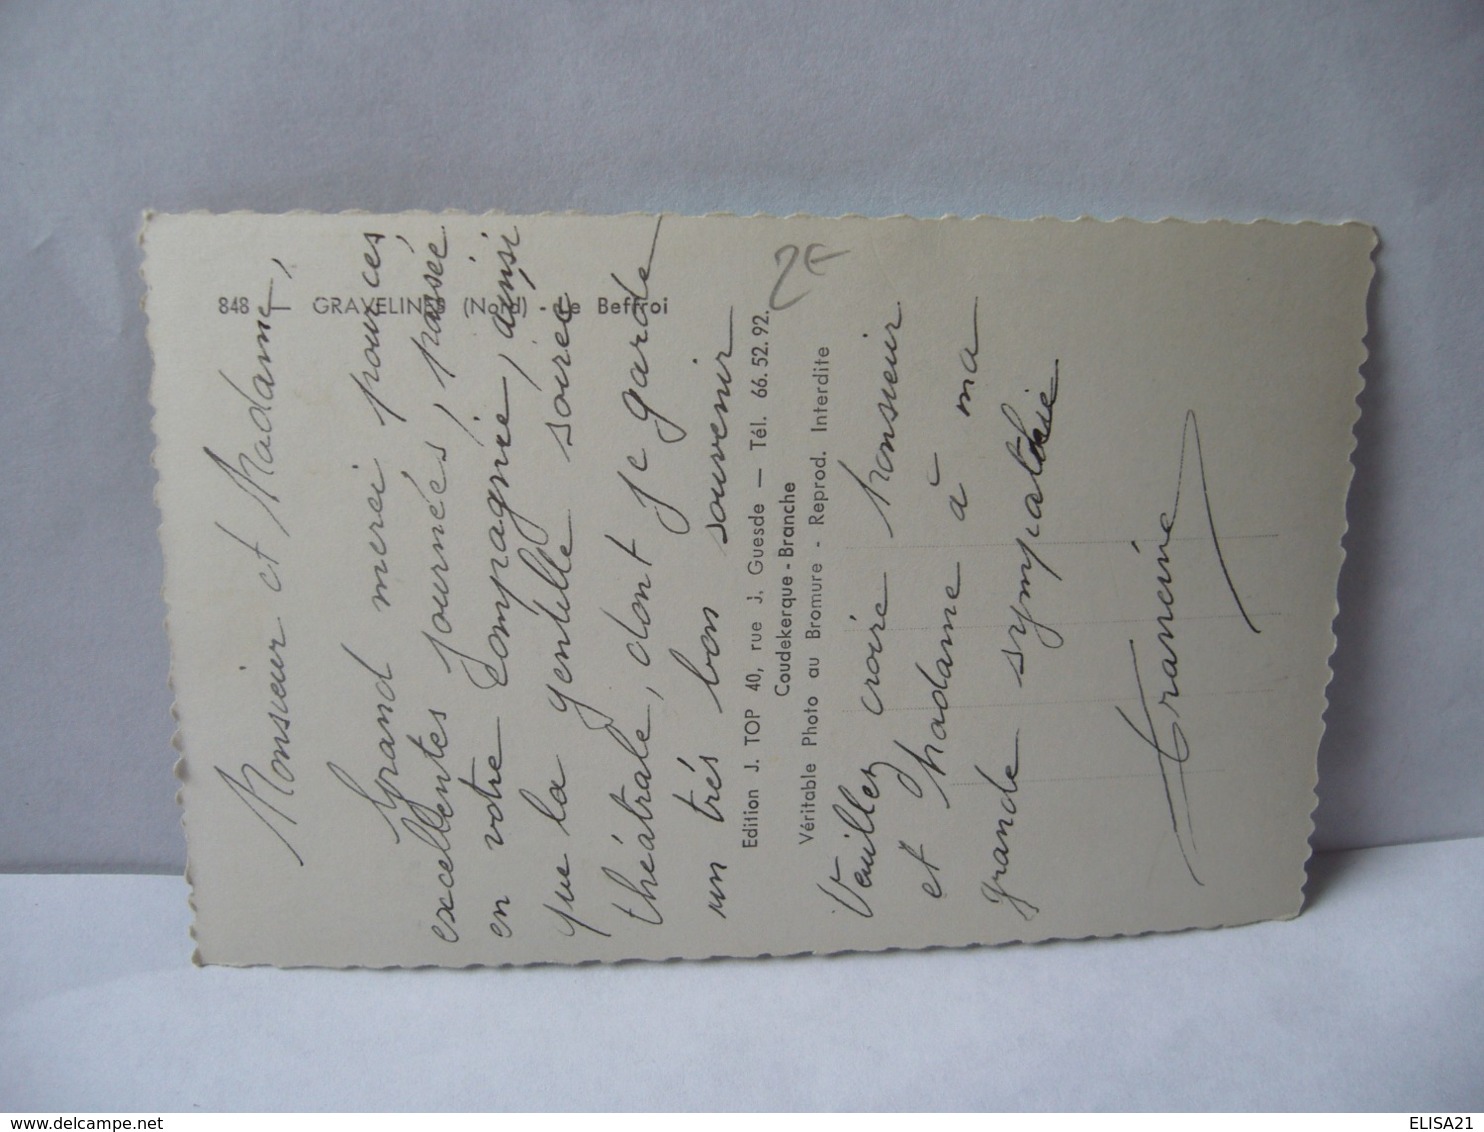 848 — GRAVELINES (Nord) - Le Beffroi
Monsieur et Madame,
Grand merci pour ces
excellentes journées, passée
en votre Compagnie, ainsi
que la gentille soirée
théâtrale, dont je garde
un très bon souvenir
Edition J. TOP 40, rue J. Guesde — Tél. 66.52.92.
Coudekerque-Branche
Véritable Photo au Bromure - Reprod. Interdite
Veuillez croire Monsieur
et Madame à ma
grande sympathie
Francine
2F
ELISA21